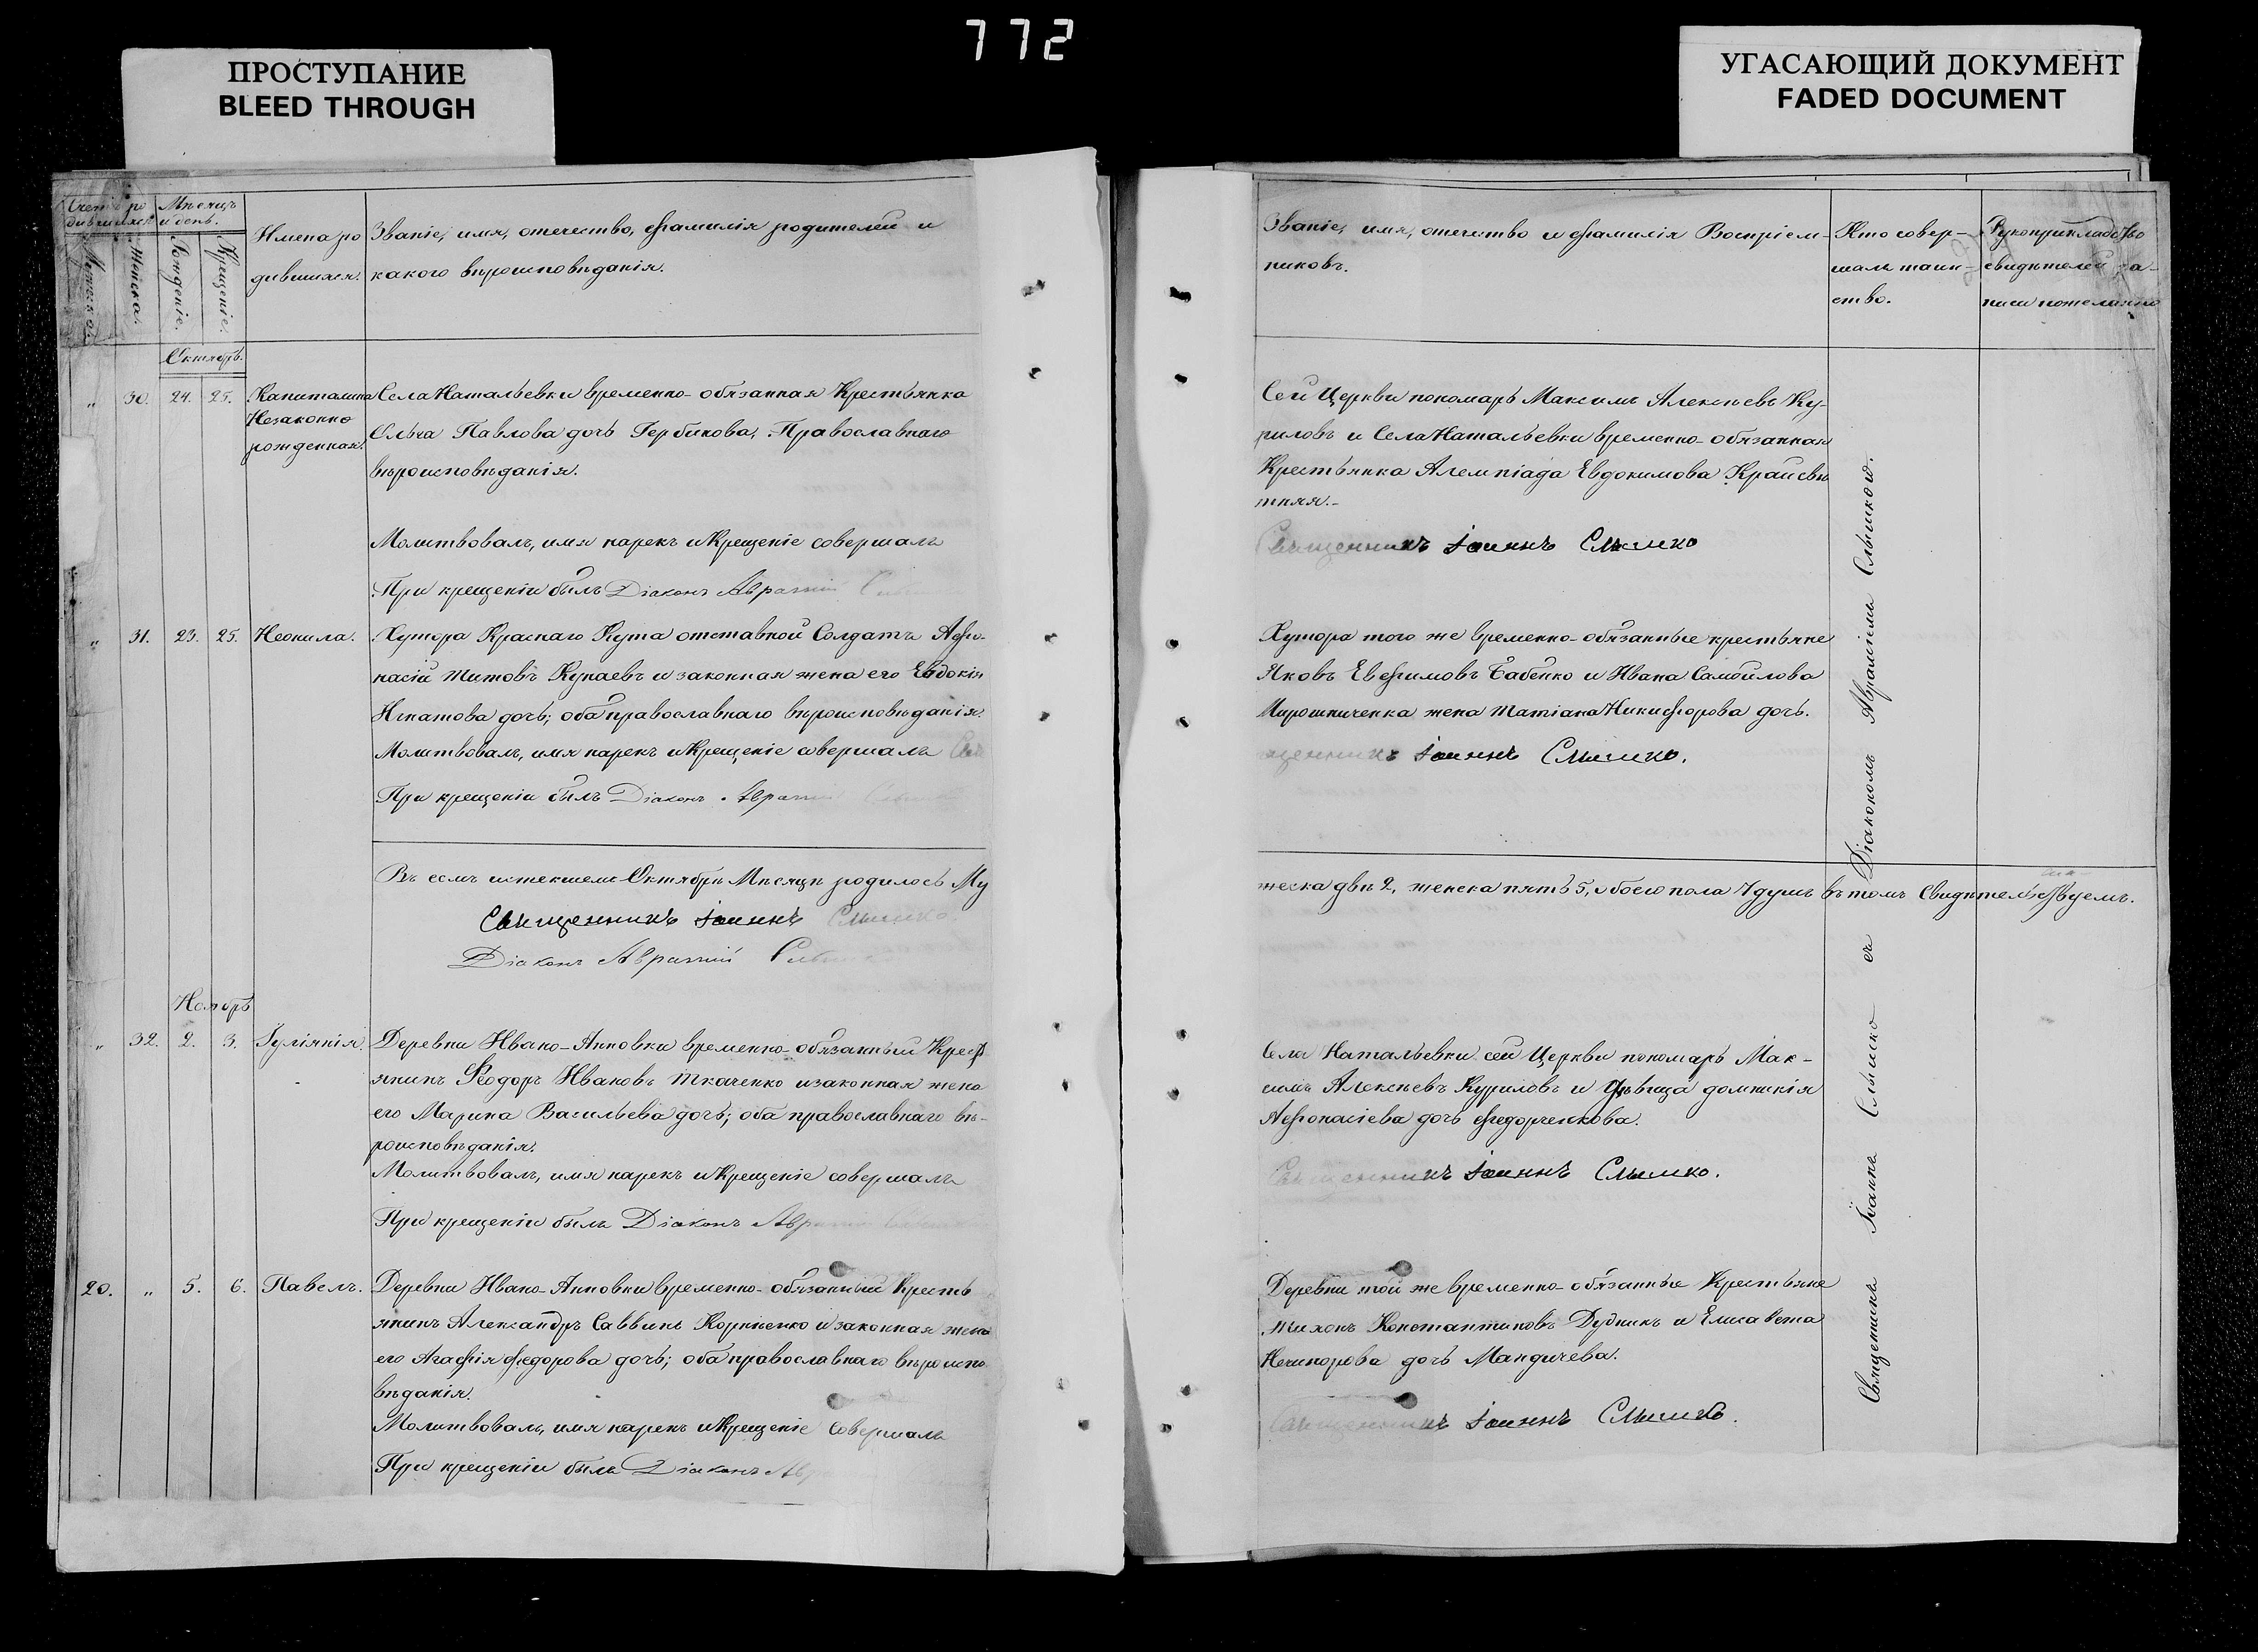 772
ПРОСТУПАНИЕ
BLEED THROUGH
УГАСАЮЩИЙ ДОКУМЕНТ
FADED DOCUMENT
Счетъ ро
дившихся
Мѣсяцъ
и день.
Мужска.
Женска.
Рожденіе.
Крещеніе.
Имена ро
дившихся.
Званіе, имя, отечество, фамилія родителей и
какого вѣроисповѣданія.
Октябрь.
„ 30. 24. 25.
Капиталина
Незаконно
рожденная.
Села Натальевки временно-обязанная Крестьянка
Павлова дочь Гербикова, Православнаго
вѣроисповѣданія.
Молитвовалъ, имя нарекъ и Крещеніе совершалъ
При крещеніи былъ Діаконъ Аврамій
„ 31. 23. 25. Неонила.
Хутора Краснаго Кута отставной Солдатъ Афо-
насій Титовъ Купаевъ и законная жена его Евдокія
Игнатова дочь; оба православнаго вѣроисповѣданія.
Молитвовалъ, имя нарекъ и Крещеніе совершалъ
При крещеніи былъ Діаконъ
Въ семъ истекшемъ Октябрѣ Мѣсяцѣ родилось Му
Священникъ Іоаннъ
Діаконъ Аврамій
Ноябрь
„ 32. 2. 3. Іуліянія.
Деревни Ивано-Анновки временно-обязанный Крест
янинъ Ѳеодоръ Ивановъ Ткаченко и законная жена
его Марина Васильева дочь; оба православнаго вѣ-
роисповѣданія.
Молитвовалъ, имя нарекъ и Крещеніе совершалъ
При крещеніи былъ Діаконъ
20. „ 5. 6. Павелъ.
Деревни Ивано-Анновки временно-обязанный Кресть
янинъ Александръ Саввинъ Корнѣенко и законная жена
его Агафія Федорова дочь; оба православнаго вѣроиспо
вѣданія.
Молитвовалъ, имя нарекъ и Крещеніе совершалъ
При крещеніи былъ Діаконъ
Званіе, имя, отечество и фамилія Воспріем-
никовъ.
Кто совер-
шалъ таин-
ство.
Рукоприкладство
свидѣтелей за-
писи по желанію
Сей Церкви пономарь Максимъ Алексѣевъ Ку-
риловъ и Села Натальевки временно-обязанная
Крестьянка Алемпіада Евдокимова Крайсвѣ
тняя.-
Священникъ Іоаннъ Слѣмко
Хутора того же временно-обязанные крестьяне
Яковъ Евфимовъ Бабенко и Ивана Самойлова
Мирошниченка жена Татіана Никифорова дочь.
Іоаннъ
жеска двѣ 2, женска пять 5, обоего пола 7 душъ въ томъ Свидѣтельствуемъ.
Села Натальевки сей Церкви пономарь Мак-
симъ Алексѣевъ Куриловъ и дѣвица домникія
Афонасіева дочь Федорченкова.
Священникъ Іоаннъ
Деревни той же временно-обязанные Крестьяне
Тихонъ Константиновъ Дудникъ и Елисавета
Нечипорова дочь Мандичева.
Священникъ Іоаннъ
Священникъ Іоаннъ съ Діакономъ Авраміемъ